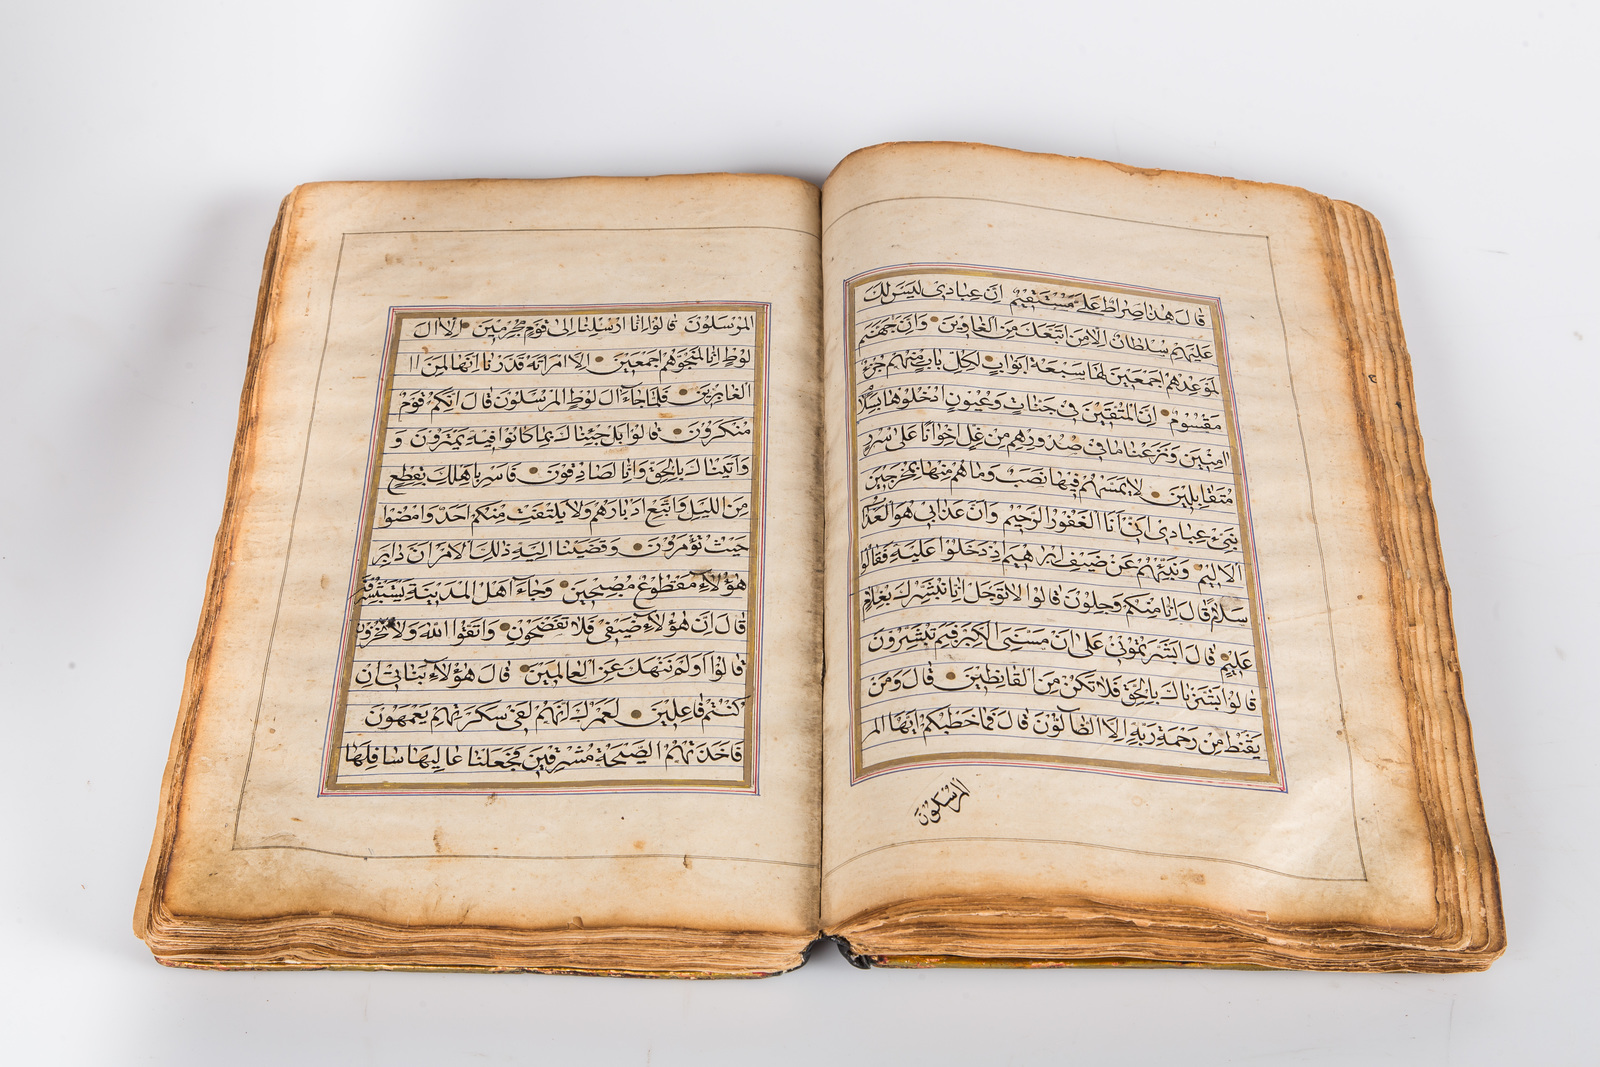 قال هذا صراط على مستقيم ان عبادى ليس لك
عليهم سلطان الا من اتبعك من الغاوين وان جهنم
لموعدهم اجمعين لها سبعة ابواب لكل باب منهم جزء
مقسوم ان المتقين فى جنات وعيون ادخلوها بسلام
امنين ونزعنا ما فى صدورهم من غل اخوانا على سرر
متقابلين لا يمسهم فيها نصب وما هم منها بمخرجين
نبئ عبادى انى انا الغفور الرحيم وان عذابى هو العذاب
الاليم ونبئهم عن ضيف ابرهيم اذ دخلوا عليه فقالوا
سلاما قال انا منكم وجلون قالوا لا توجل انا نبشرك بغلام
عليم قال ابشرتمونى على ان مسنى الكبر فبم تبشرون
قالوا بشرناك بالحق فلا تكن من القانطين قال ومن
يقنط من رحمة ربه الا الضالون قال فما خطبكم ايها المر
المرسلون
المرسلون قالوا انا ارسلنا الى قوم مجرمين الا ال
لوط انا لمنجوهم اجمعين الا امراته قدرنا انها لمن ا
الغابرين فلما جاء ال لوط المرسلون قال انكم قوم
منكرون قالوا بل جئناك بما كانوا فيه يمترون و
واتيناك بالحق وانا لصادقون فاسر باهلك بقطع
من الليل واتبع ادبارهم ولا يلتفت منكم احد وامضوا
حيث تؤمرون وقضينا اليه ذلك الامر ان دابر
هؤلاء مقطوع مصبحين وجاء اهل المدينة يستبشرون
قال ان هؤلاء ضيفى فلا تفضحون واتقوا الله ولا تخزون
قالوا اولم ننهك عن العالمين قال هؤلاء بناتى ان
كنتم فاعلين لعمرك انهم لفى سكرتهم يعمهون
فاخذتهم الصيحة مشرقين فجعلنا عاليها سافلها